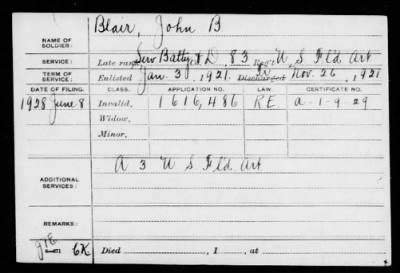 NAME OF SOLDIER: Blair, John B
SERVICE: Late rank, Serv Batty & D 83 Reg't U S Fld Art
TERM OF SERVICE: Enlisted Jan. 3, 1921. Discharged Nov. 26, 1921
DATE OF FILING. CLASS. APPLICATION NO. LAW. CERTIFICATE NO.
1928 June 8 Invalid, 1616,486 RE a-1-9-29
Widow,
Minor,
ADDITIONAL SERVICES: A 3 U S Fld Art
REMARKS:
6K Died , 1 , at